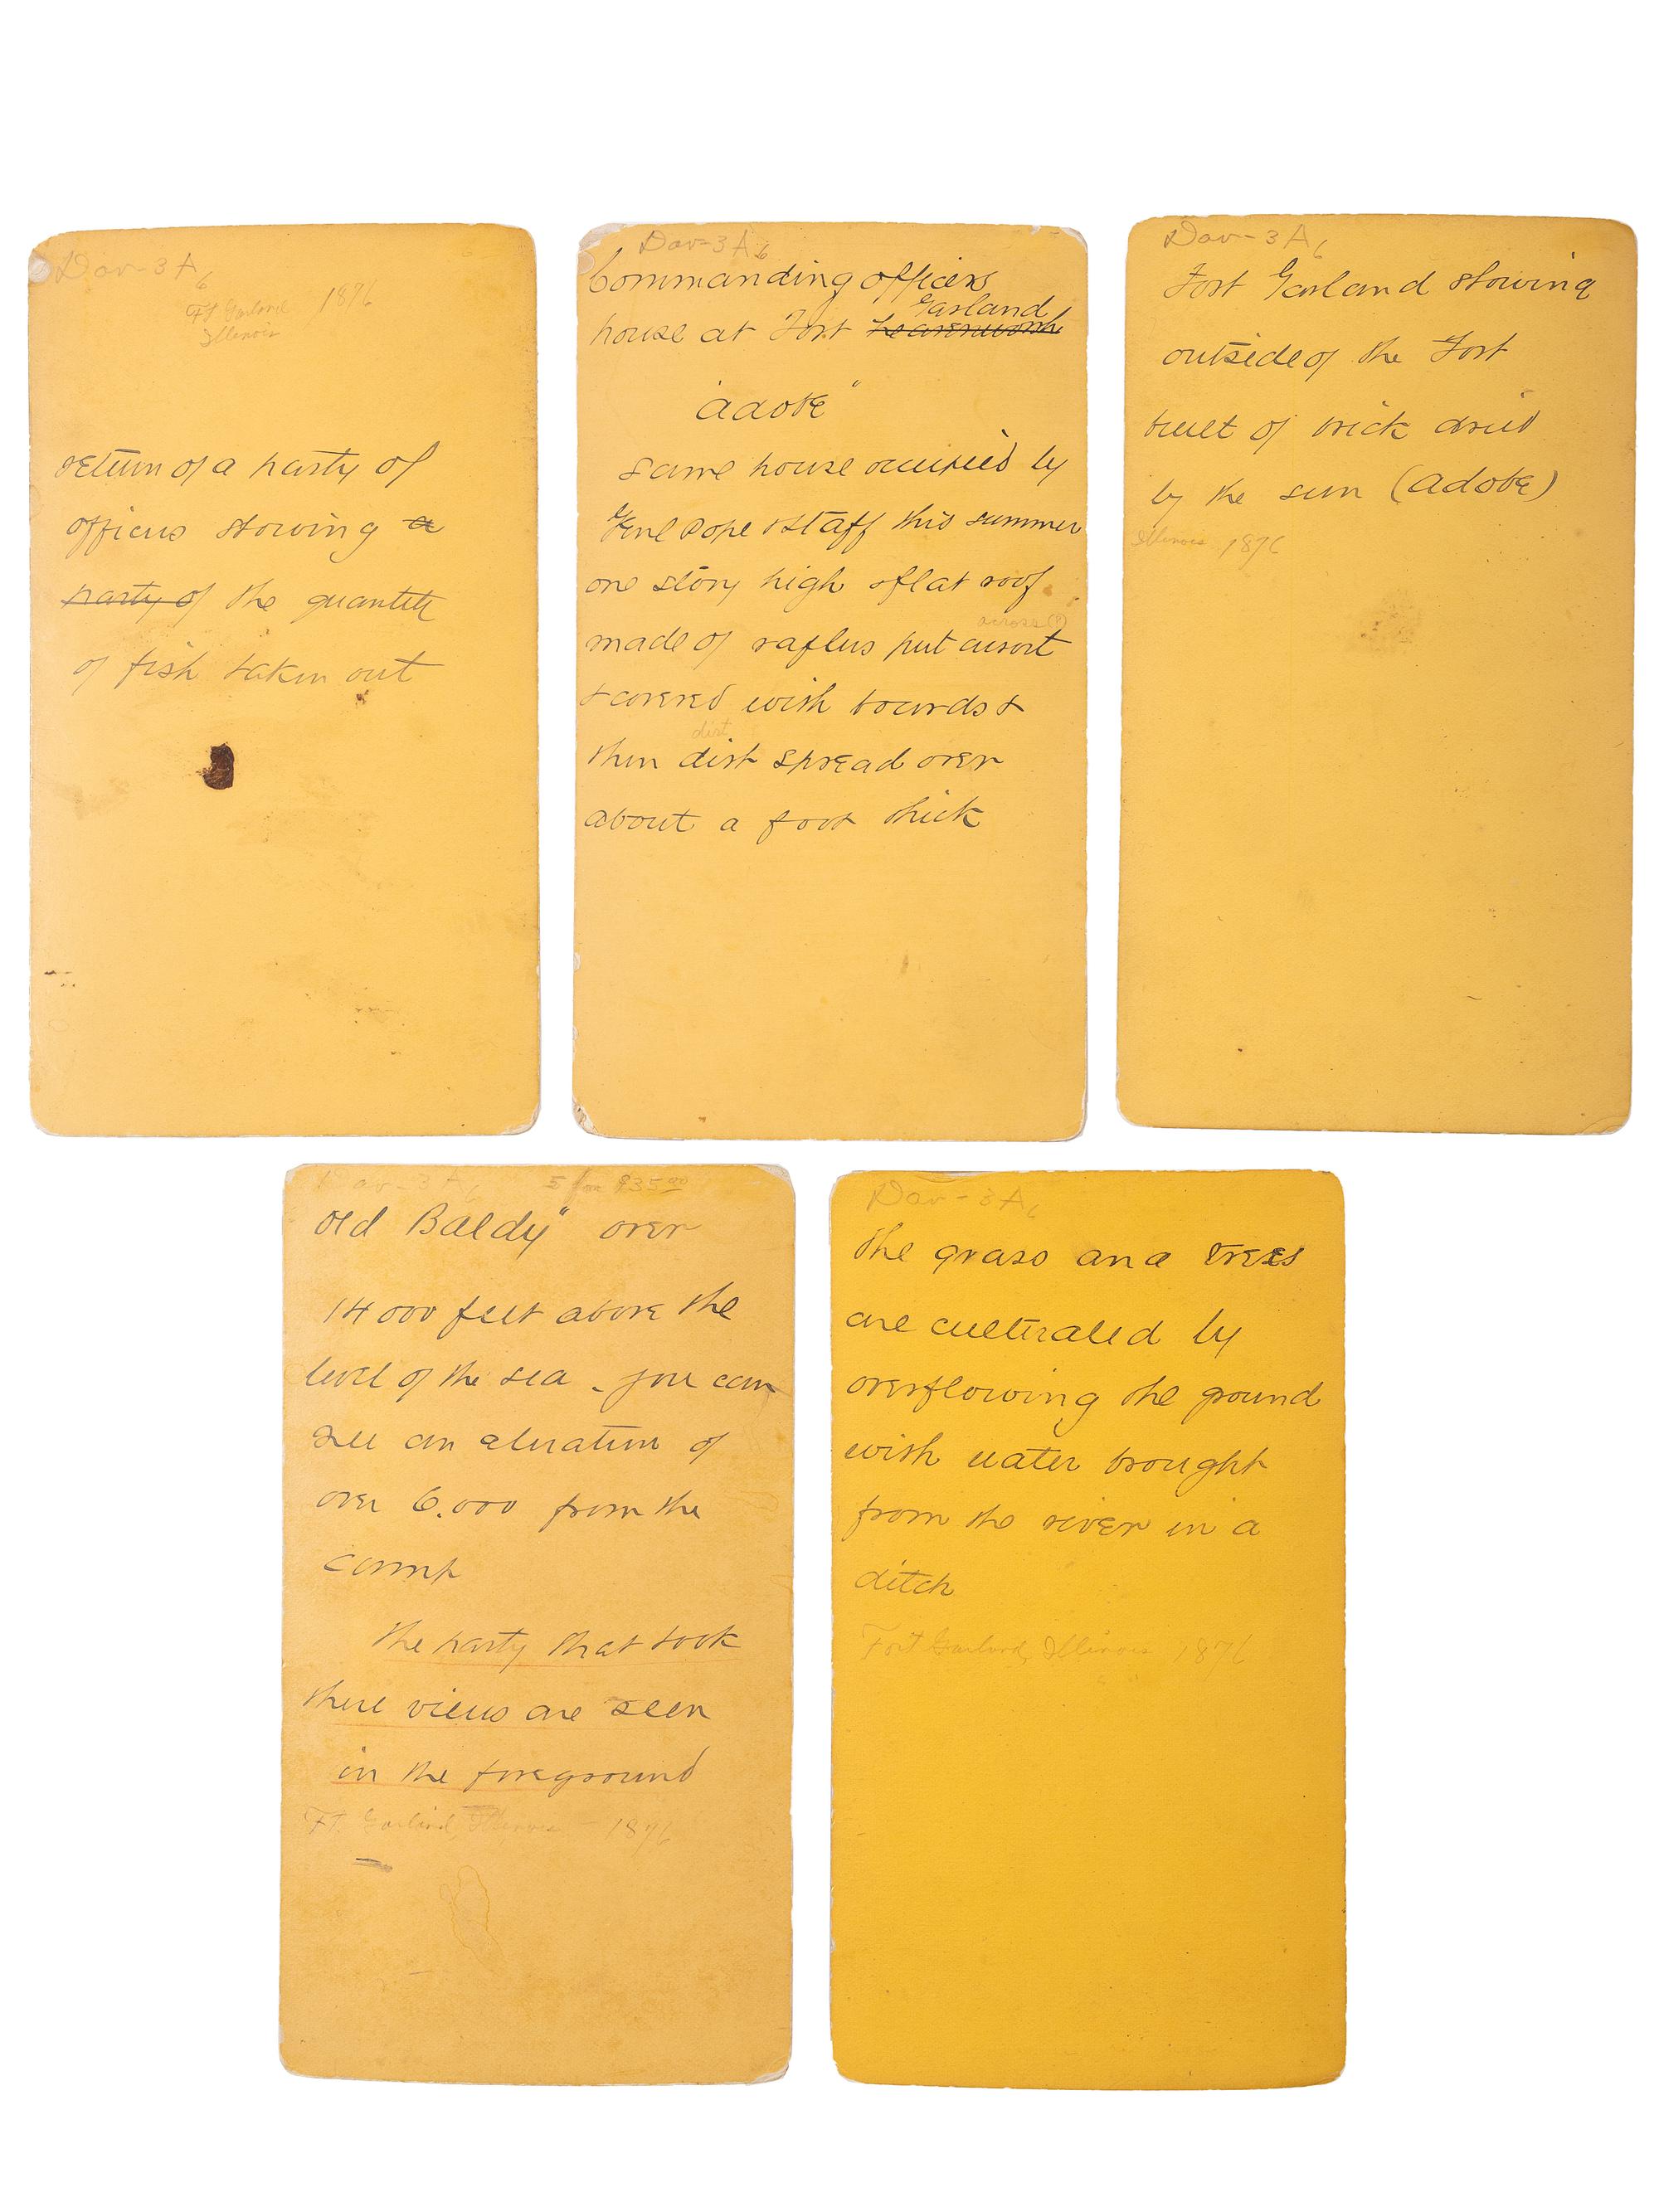 Dav-3A6
Ft Garland 1876
Illinois
return of a party of
officers showing a
party of the quantity
of fish taken out
Dav-3A6
Commanding officers
Garland
house at Fort Leavenworth
"adobe"
same house occupied by
Genl Pope & staff this summer
one story high & flat roof
across(?)
made of rafters put
& covered with boards &
dirt
then dirt spread over
about a foot thick
Dav-3A6
Fort Garland showing
outside of the Fort
built of brick dried
by the sun (adobe)
Illinois 1876
Dav-3A6 5 for $35.00
Old Baldy" over
14000 feet above the
level of the sea - you can
see an elevation of
over 6.000 from the
camp
the party that took
these views are seen
in the foreground
Ft. Garland, Illinois - 1876
Dav-3A6
The grass and trees
are cultivated by
overflowing the ground
with water brought
from the river in a
ditch
Fort Garland, Illinois 1876